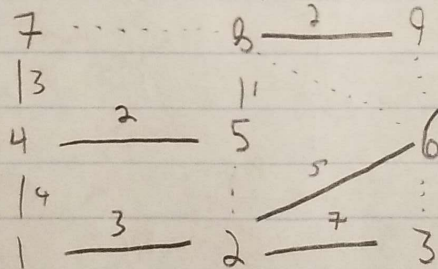 7 8 2 9
3 1
4 2 5 6
4 5
1 3 2 7 3